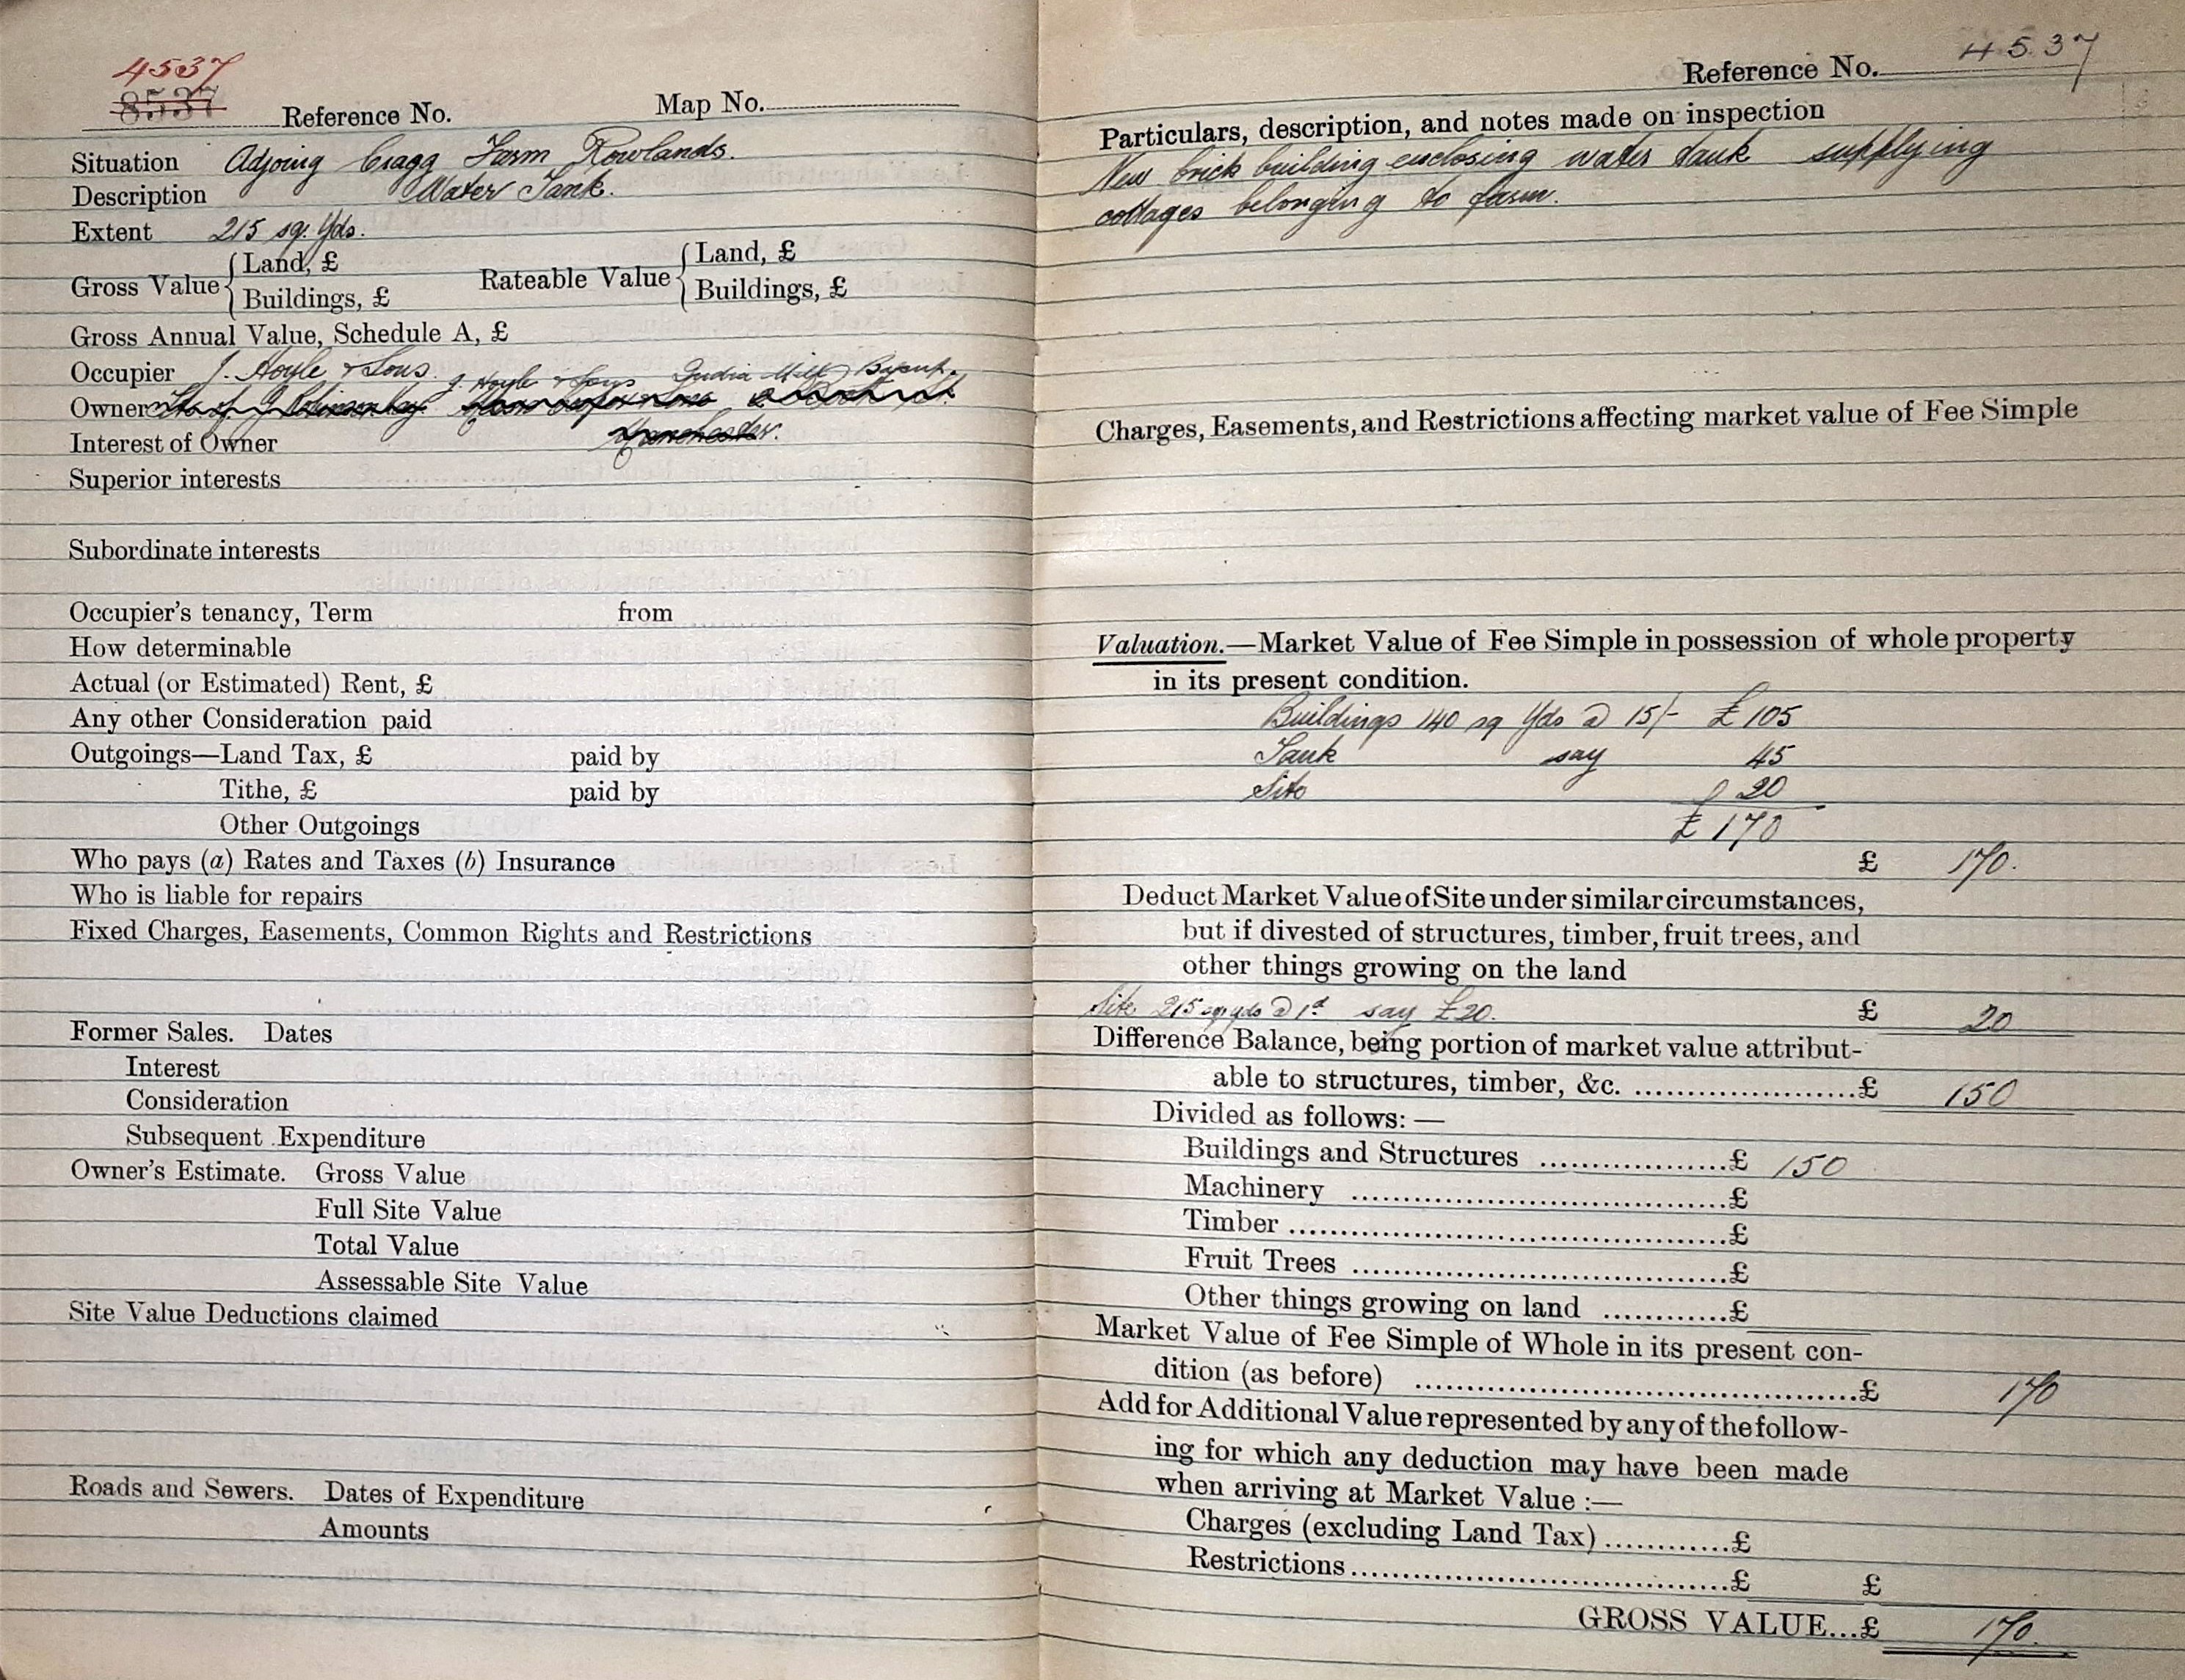 4537
8537 Reference No. Map No.
Situation Adjoing Cragg Farm Rowlands.
Description Water Tank.
Extent 215 sq. Yds.
Gross Value { Land, £ Rateable Value { Land, £
Buildings, £ Buildings, £
Gross Annual Value, Schedule A, £
Occupier J. Hoyle & Sons.
J. Hoyle & Sons India Mill
Owner
Interest of Owner Manchester.
Superior interests
Subordinate interests
Occupier's tenancy, Term from
How determinable
Actual (or Estimated) Rent, £
Any other Consideration paid
Outgoings—Land Tax, £ paid by
Tithe, £ paid by
Other Outgoings
Who pays (a) Rates and Taxes (b) Insurance
Who is liable for repairs
Fixed Charges, Easements, Common Rights and Restrictions
Former Sales. Dates
Interest
Consideration
Subsequent Expenditure
Owner's Estimate. Gross Value
Full Site Value
Total Value
Assessable Site Value
Site Value Deductions claimed
Roads and Sewers. Dates of Expenditure
Amounts
Reference No. 4537
Particulars, description, and notes made on inspection
New brick building enclosing water tank supplying
cottages belonging to farm.
Charges, Easements, and Restrictions affecting market value of Fee Simple
Valuation.—Market Value of Fee Simple in possession of whole property
in its present condition.
Buildings 140 sq Yds @ 15/- £105
Tank say 45
Site 20
£170
£ 170.
Deduct Market Value of Site under similar circumstances,
but if divested of structures, timber, fruit trees, and
other things growing on the land
Site 215 sq yds @ 1d say £20. £ 20
Difference Balance, being portion of market value attribut-
able to structures, timber, &c. ......................£ 150
Divided as follows:—
Buildings and Structures ...................£ 150
Machinery ......................................£
Timber ............................................£
Fruit Trees ......................................£
Other things growing on land ............£
Market Value of Fee Simple of Whole in its present con-
dition (as before) .............................................£ 170
Add for Additional Value represented by any of the follow-
ing for which any deduction may have been made
when arriving at Market Value :—
Charges (excluding Land Tax) ............£
Restrictions.......................................£ £
GROSS VALUE...£ 170.